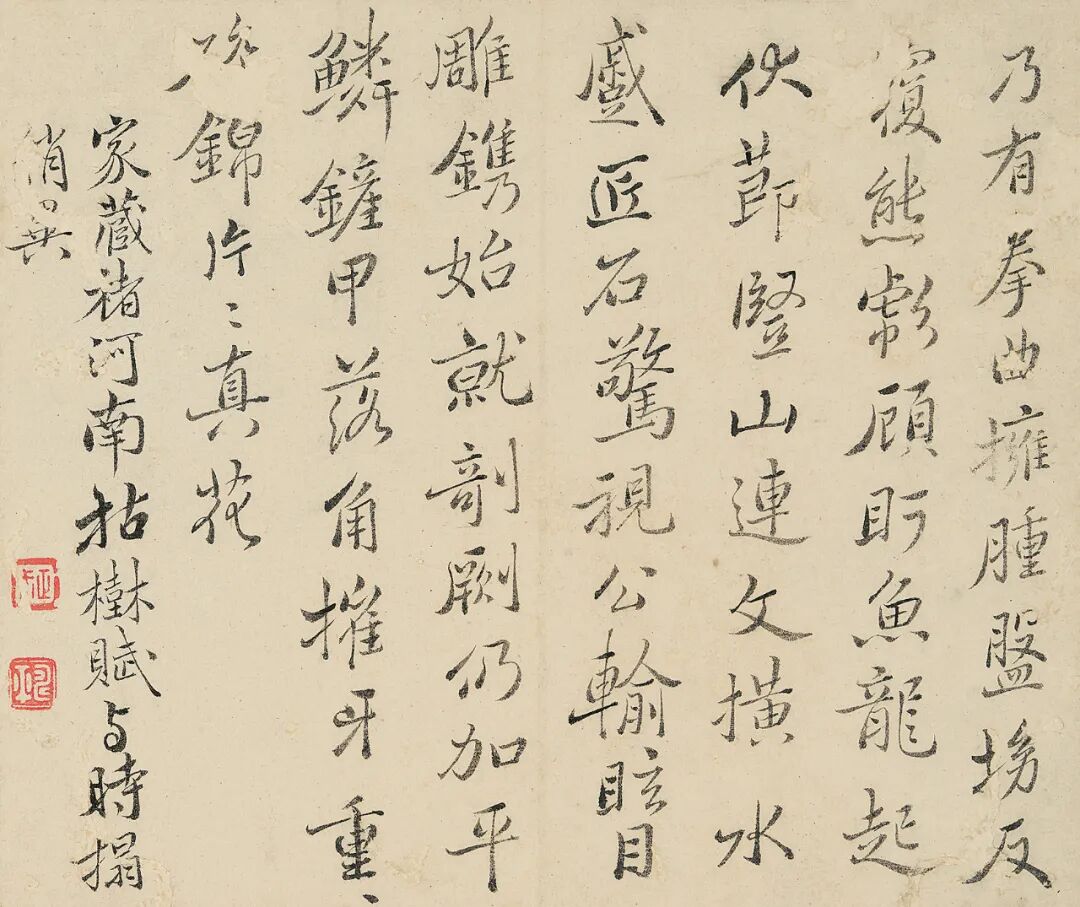 乃有拳曲擁腫盤坳反
覆熊彪顧盼魚龍起
伏莭豎山連文橫水
蹙匠石驚視公輸眩目
雕鐫始就剞劂仍加平
鱗鏟甲落角摧牙重〻
碎錦片〻真花
家藏褚河南枯樹賦与時搨